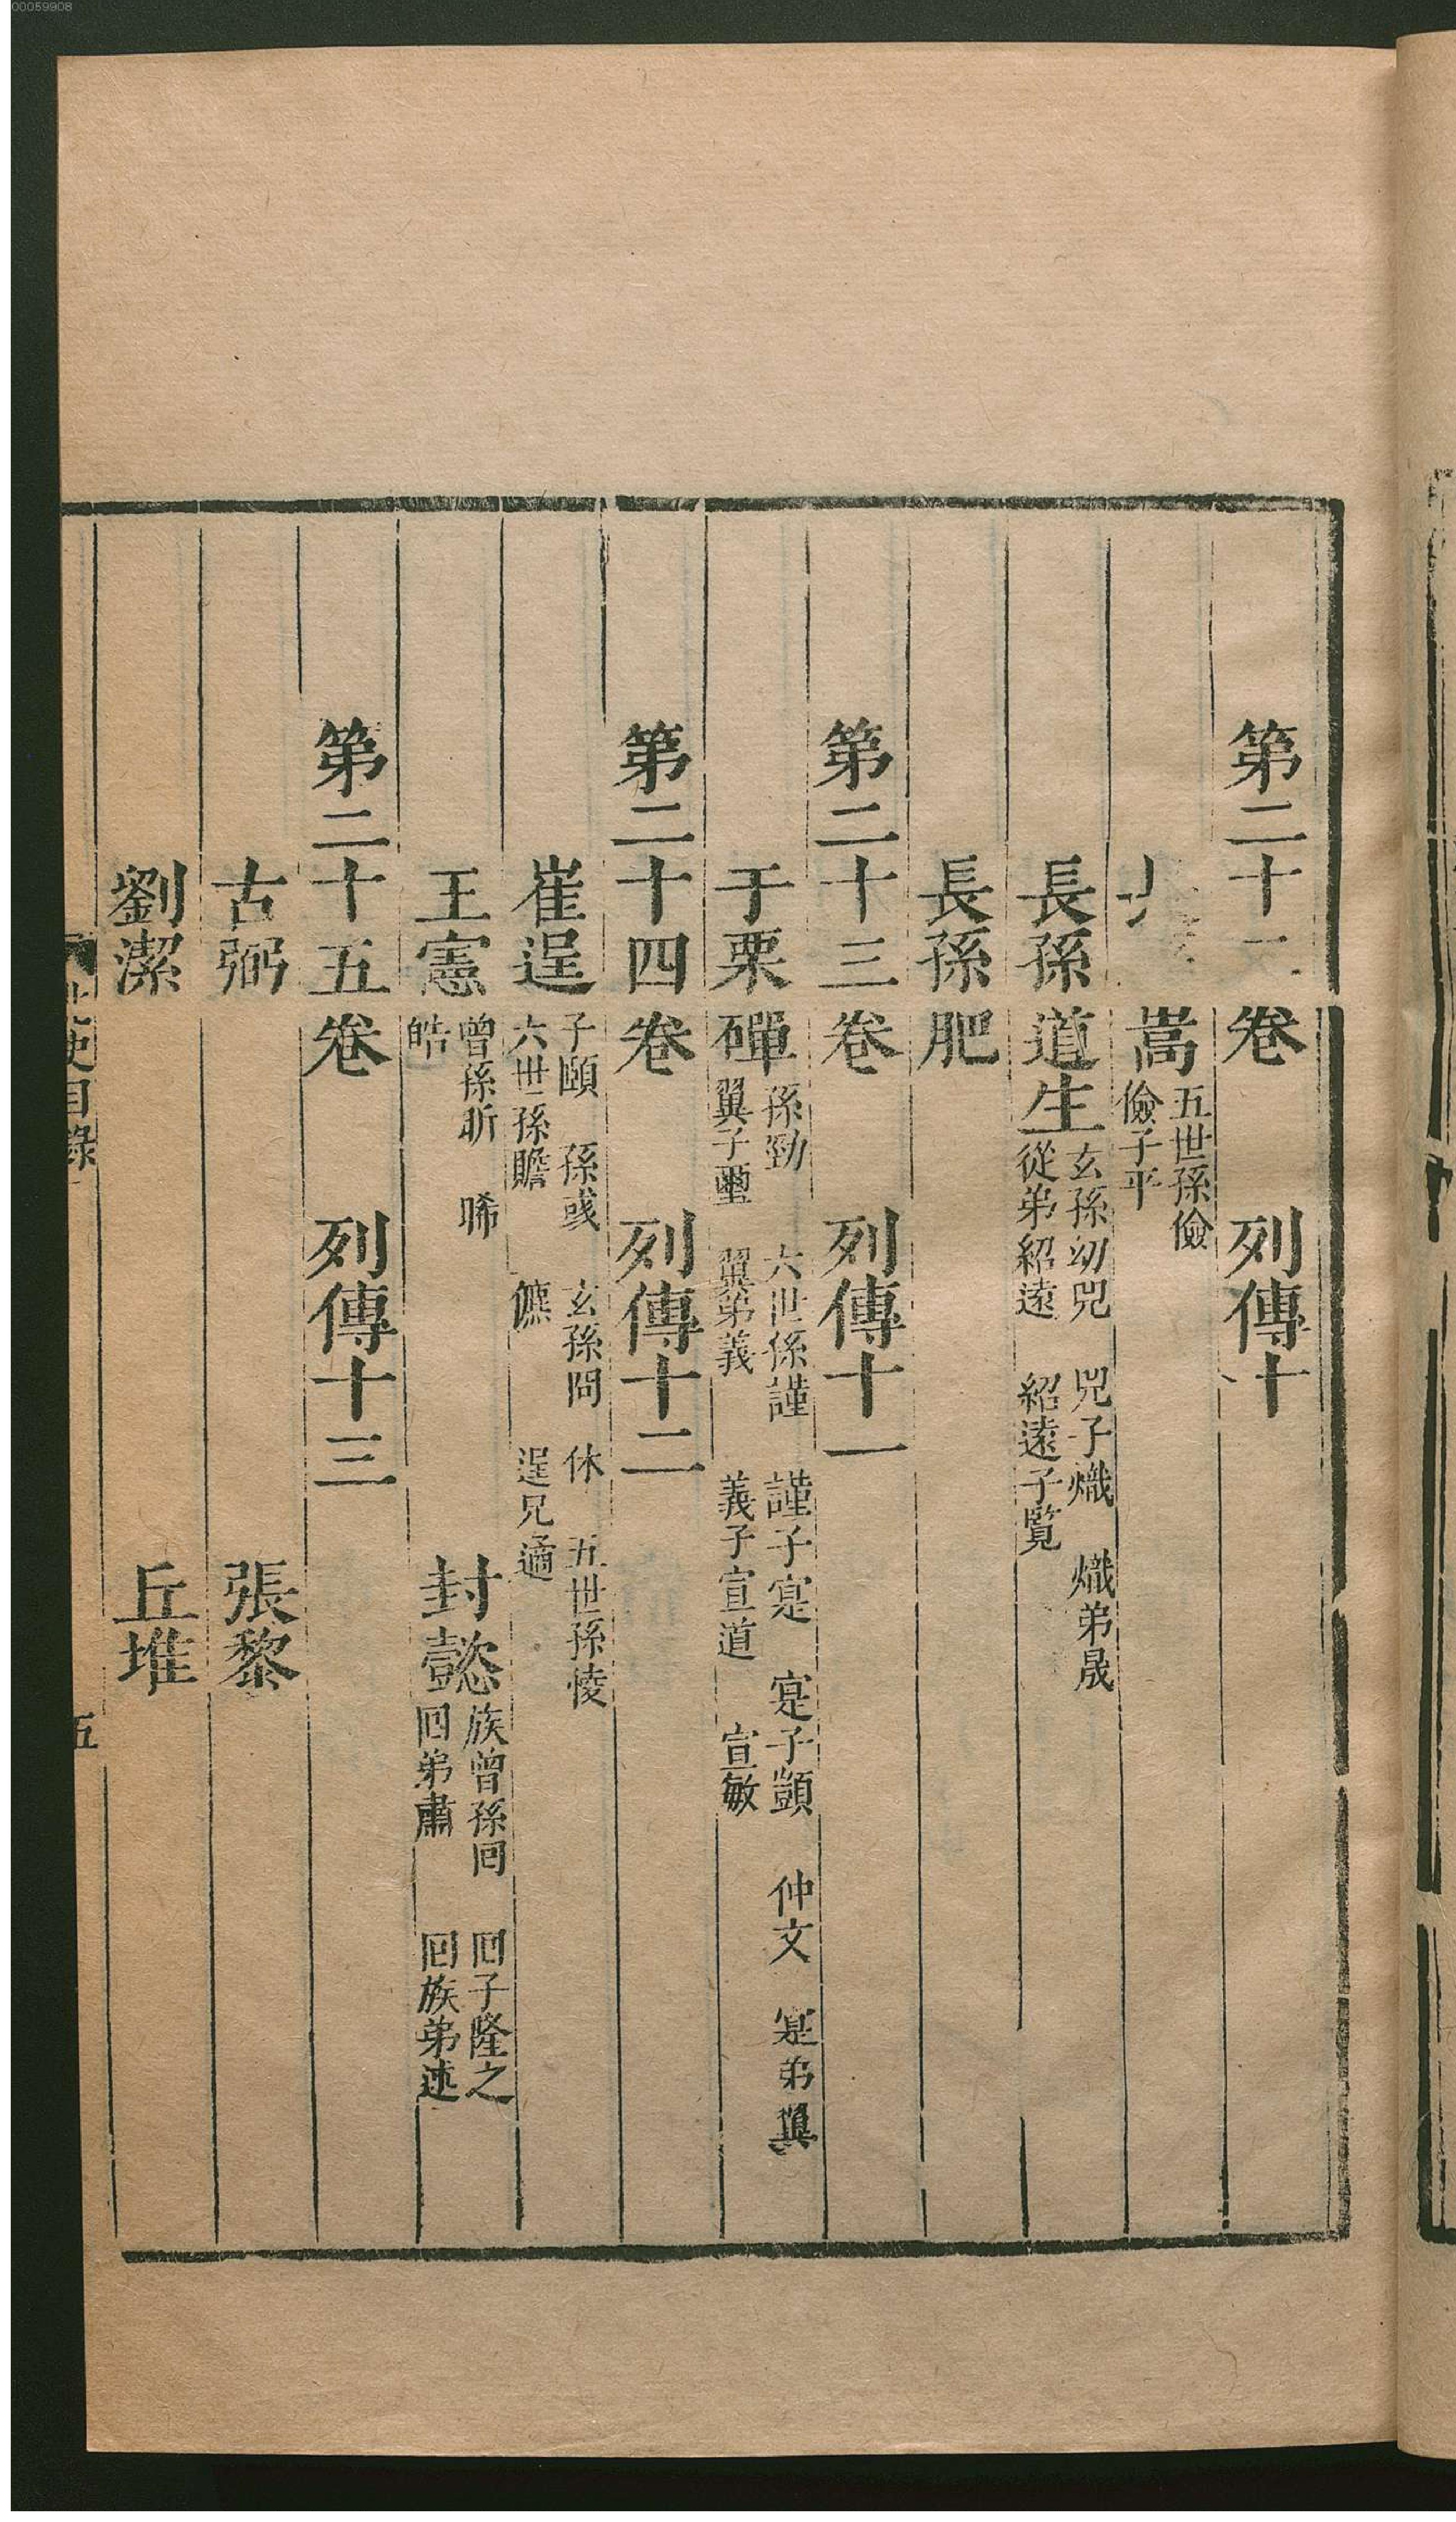 第二十二卷　列傳十
嵩　五世孫儉
儉子平
長孫道生　玄孫幼兕　兕子熾　熾弟晟
從弟紹遠　紹遠子覽
長孫肥
第二十三卷　列傳十一
于栗磾　孫勁　六世孫謹　謹子寔　寔子顗　仲文　寔弟翼
翼子璽　翼弟義　義子宣道　宣敏
第二十四卷　列傳十二
崔逞　子頤　孫彧　玄孫冏　休　五世孫㥄
六世孫贍　儦　逞兄適
王憲　曾孫昕　晞
皓
封懿　族曾孫囘　囘子隆之
囘弟肅　囘族弟述
第二十五卷　列傳十三
古弼　張黎
劉潔　丘堆
史目錄　五
00059908